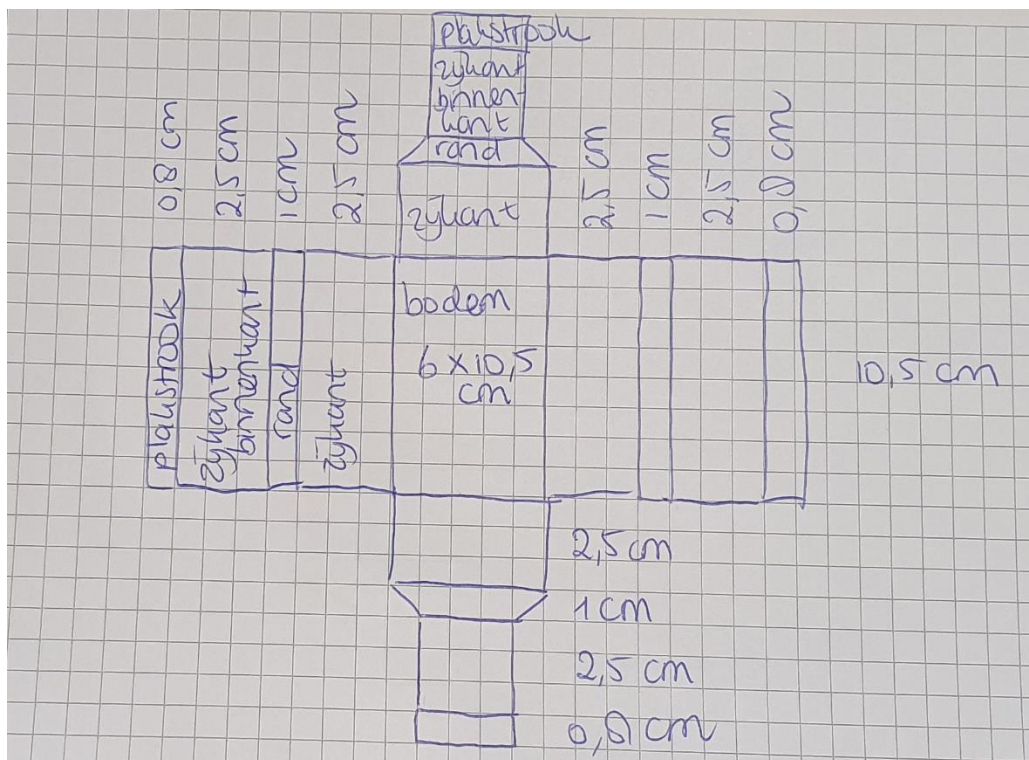 plakstrook
zijkant
binnen
kant
rand
zijkant
0,8 cm
2,5 cm
1 cm
2,5 cm
2,5 cm
1 cm
2,5 cm
0,8 cm
plakstrook
zijkant
binnenkant
rand
zijkant
bodem
6 x 10,5
cm
10,5 cm
2,5 cm
1 cm
2,5 cm
0,8 cm